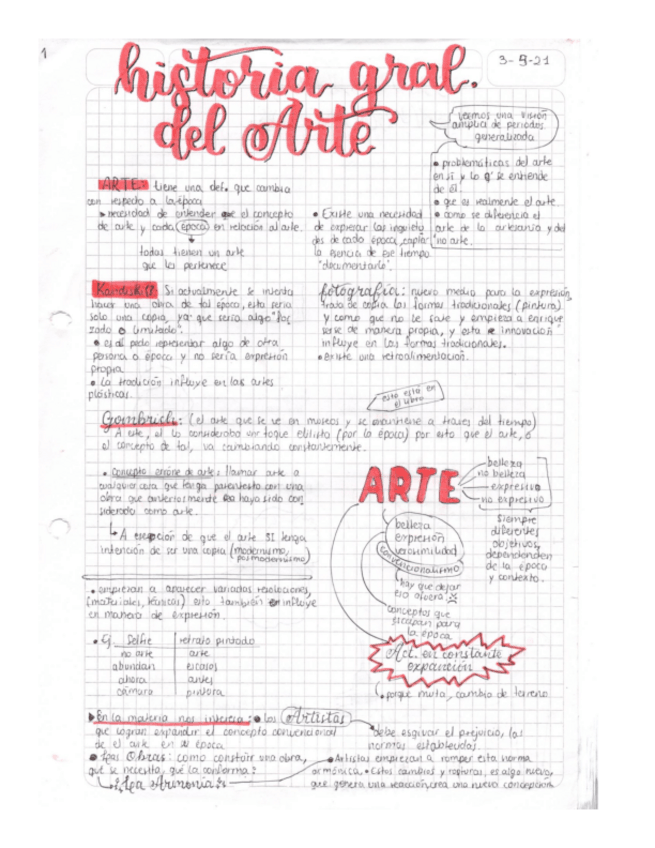 1
historia gral.
del Arte
3-5-21
veemos una visión
amplia de periodos
generalizada
• problemáticas del arte
en sí y lo q' se entiende
de él.
• que es realmente el arte
• como se diferencia el
arte de la artesanía y del
"no arte.
ARTE: tiene una def. que cambia
con respecto a la época
necesidad de entender que el concepto
de arte y cada época en relación al arte.
todas tienen un arte
que les pertenece
• Existe una necesidad
de expresar las inquietu
des de cada época, captar
la esencia de ese tiempo
"documentarlo".
Si actualmente se intenta
hacer una obra de tal época, esta sería
solo una copia, ya que sería algo "for
zado o limitado".
• es al pedo representar algo de otra
persona o época y no sería expresión
propia.
• La tradición influye en las artes
plásticas.
fotografía: nuevo medio para la expresión,
trata de copia las formas tradicionales (pintura)
y como que no le sale y empieza a enrique
serse de manera propia, y esta innovación
influye en las formas tradicionales.
• existe una retroalimentación.
esto está en
el libro
Gombrich: (el arte que se ve en museos y se mantiene a traves del tiempo)
A este, el lo consideraba un toque elitista (por la época) por esto que el arte, o
el concepto de tal, va cambiando constantemente.
• Concepto errone de arte: llamar arte a
cualquier cosa que tenga parentesco con una
obra que anteriormente haya sido con
siderado como arte.
A excepción de que el arte SI tenga
intención de ser una copia (modernismo,
posmodernismo)
ARTE
belleza
no belleza
expresivo
no expresivo
siempre
diferentes
objetivos,
dependenden
de la época
y contexto.
belleza
expresión
verosimilidad
convencionalismo
hay que dejar
eso afuera
conceptos que
para
la época
Act. en constante
expansión
porque muta, cambia de terreno
• empiezan a aparecer variados resoluciones,
(materiales, técnicas) esto también influye
en manera de expresión.
• Ej. Selfie retrato pintado
no arte arte
abundan escasos
ahora antes
cámara pintura
En la materia nos interesa: • los Artistas
que logran expandir el concepto convencional
de el arte en su época
debe esquivar el prejuicio, las
normas establecidas.
• Las Obras: como construir una obra,
qué se necesita, qué la conforma?
La Armonía
• Artistas empiezan a romper esta norma
armónica. • Estos cambios y rupturas, es algo nuevo,
que genera una reacción, crea una nueva concepción